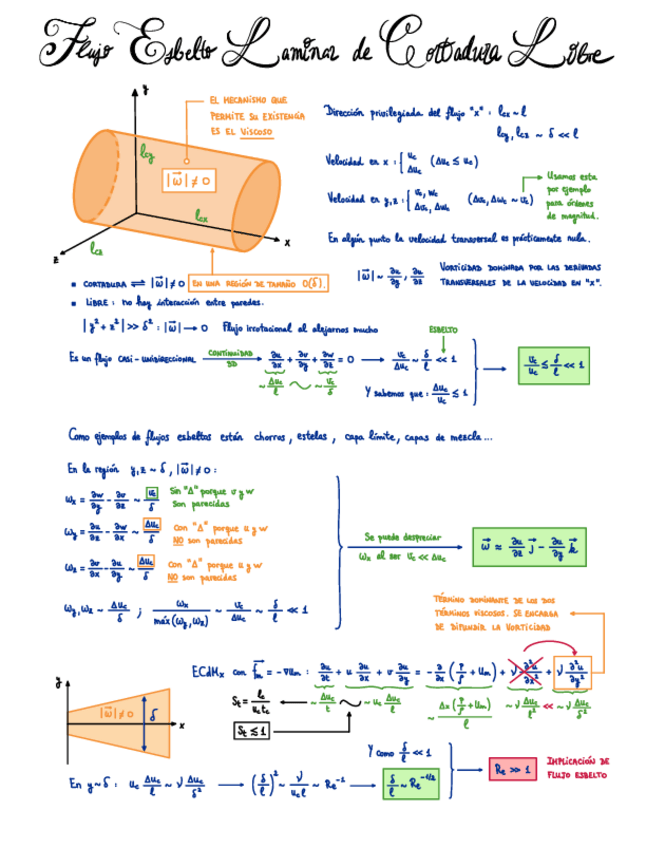 Flujo Esbelto Laminar de Cortadura Libre
y
EL MECANISMO QUE
PERMITE SU EXISTENCIA
ES EL VISCOSO
Dirección privilegiada del flujo "x" : lcx ~ l
lcy, lcz ~ δ << l
lcy
|ω⃗| ≠ 0
lcx
x
z
lcz
Velocidad en x : { uc (Δuc ≤ uc)
Δuc
Velocidad en y, z : { vc, wc (Δvc, Δwc ~ vc)
Δvc, Δwc
Usamos esta
por ejemplo
para órdenes
de magnitud.
En algún punto la velocidad transversal es prácticamente nula.
▪ CORTADURA ⇌ |ω⃗| ≠ 0 EN UNA REGIÓN DE TAMAÑO O(δ).
|ω⃗| ~ ∂u/∂y, ∂u/∂z
VORTICIDAD DOMINADA POR LAS DERIVADAS
TRANSVERSALES DE LA VELOCIDAD EN "X".
▪ LIBRE : no hay interacción entre paredes.
|y² + z²| >> δ² : |ω⃗| → 0 Flujo irrotacional al alejarnos mucho
ESBELTO
Es un flujo CASI-UNIDIRECCIONAL CONTINUIDAD 3D → ∂u/∂x + ∂v/∂y + ∂w/∂z = 0 → vc/Δuc ~ δ/l << 1
~ Δuc/l ~ ~ vc/δ
Y sabemos que : Δuc/uc ≤ 1
vc/uc ≤ δ/l << 1
Como ejemplos de flujos esbeltos están chorros, estelas, capa límite, capas de mezcla...
En la región y, z ~ δ, |ω⃗| ≠ 0 :
ωx = ∂w/∂y - ∂v/∂z ~ vc/δ Sin "Δ" porque v y w
son parecidas
ωy = ∂u/∂z - ∂w/∂x ~ Δuc/δ Con "Δ" porque u y w
NO son parecidas
ωz = ∂v/∂x - ∂u/∂y ~ Δuc/δ Con "Δ" porque u y w
NO son parecidas
Se puede despreciar
ωx al ser vc << Δuc
ω⃗ ≈ ∂u/∂z j⃗ - ∂u/∂y k⃗
ωy, ωz ~ Δuc/δ ; ωx/máx(ωy, ωz) ~ vc/Δuc ~ δ/l << 1
TÉRMINO DOMINANTE DE LOS DOS
TÉRMINOS VISCOSOS. SE ENCARGA
DE DIFUNDIR LA VORTICIDAD
ECdMx con f⃗m = -∇Um : ∂u/∂t + u ∂u/∂x + v ∂u/∂y = - ∂/∂x (P/ρ + Um) + ν ∂²u/∂x² + ν ∂²u/∂y²
St = lc/(uc tc) ← ~ Δuc/t ~ ~ uc Δuc/l ~ Δx(P/ρ + Um)/l ~ ν Δuc/l² << ~ ν Δuc/δ²
St ≤ 1
y
|ω⃗| ≠ 0
δ
x
Y como δ/l << 1
En y ~ δ : uc Δuc/l ~ ν Δuc/δ² → (δ/l)² ~ ν/(uc l) ~ Re⁻¹ → δ/l ~ Re^-1/2
Re >> 1
IMPLICACIÓN DE
FLUJO ESBELTO